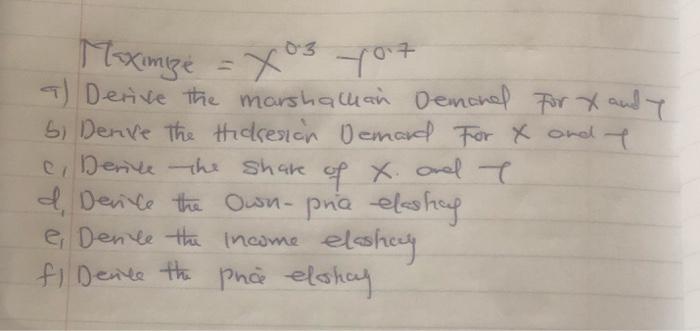 Maximize = X^0.3 Y^0.7
a) Derive the marshallian Demand For X and Y
b) Derive the Hicksian Demand For X and Y
c) Derive the Share of X. and Y
d, Derive the Own-price elasticity
e) Derive the income elasticity
f) Derive the price elasticity